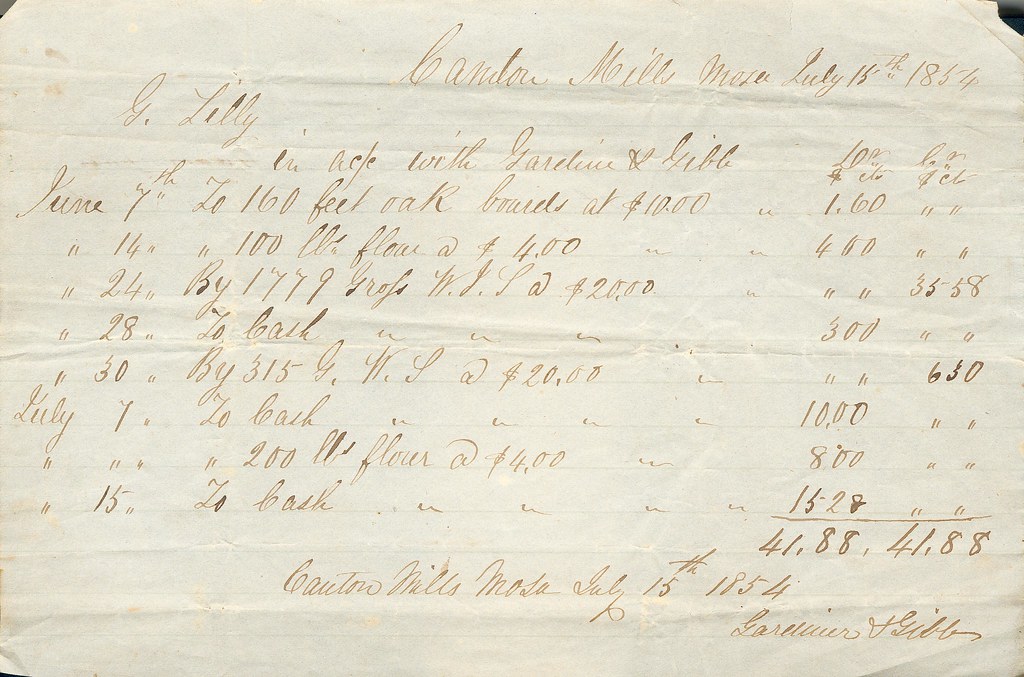 Canton Mills Mosa July 15th 1854
G. Lilly
in a/c with Gardiner & Gibb Dr Cr
$ cts $ ct
June 7th To 160 feet oak boards at $10.00 " 1.60 " "
" 14 " " 100 lbs flour @ $4.00 " " 400 " "
" 24 " By 1779 Gross W.I.S @ $20.00 " " " 3558
" 28 " To Cash " " " 300 " "
" 30 " By 315 G. W. S @ $20.00 " " " 630
July 7 " To Cash " " " " 10.00 " "
" " " " 200 lbs flour @ $4.00 " 800 " "
" 15 " To Cash " " " " 1528 " "
41.88, 41.88
Canton Mills Mosa July 15th 1854
Gardiner & Gibb